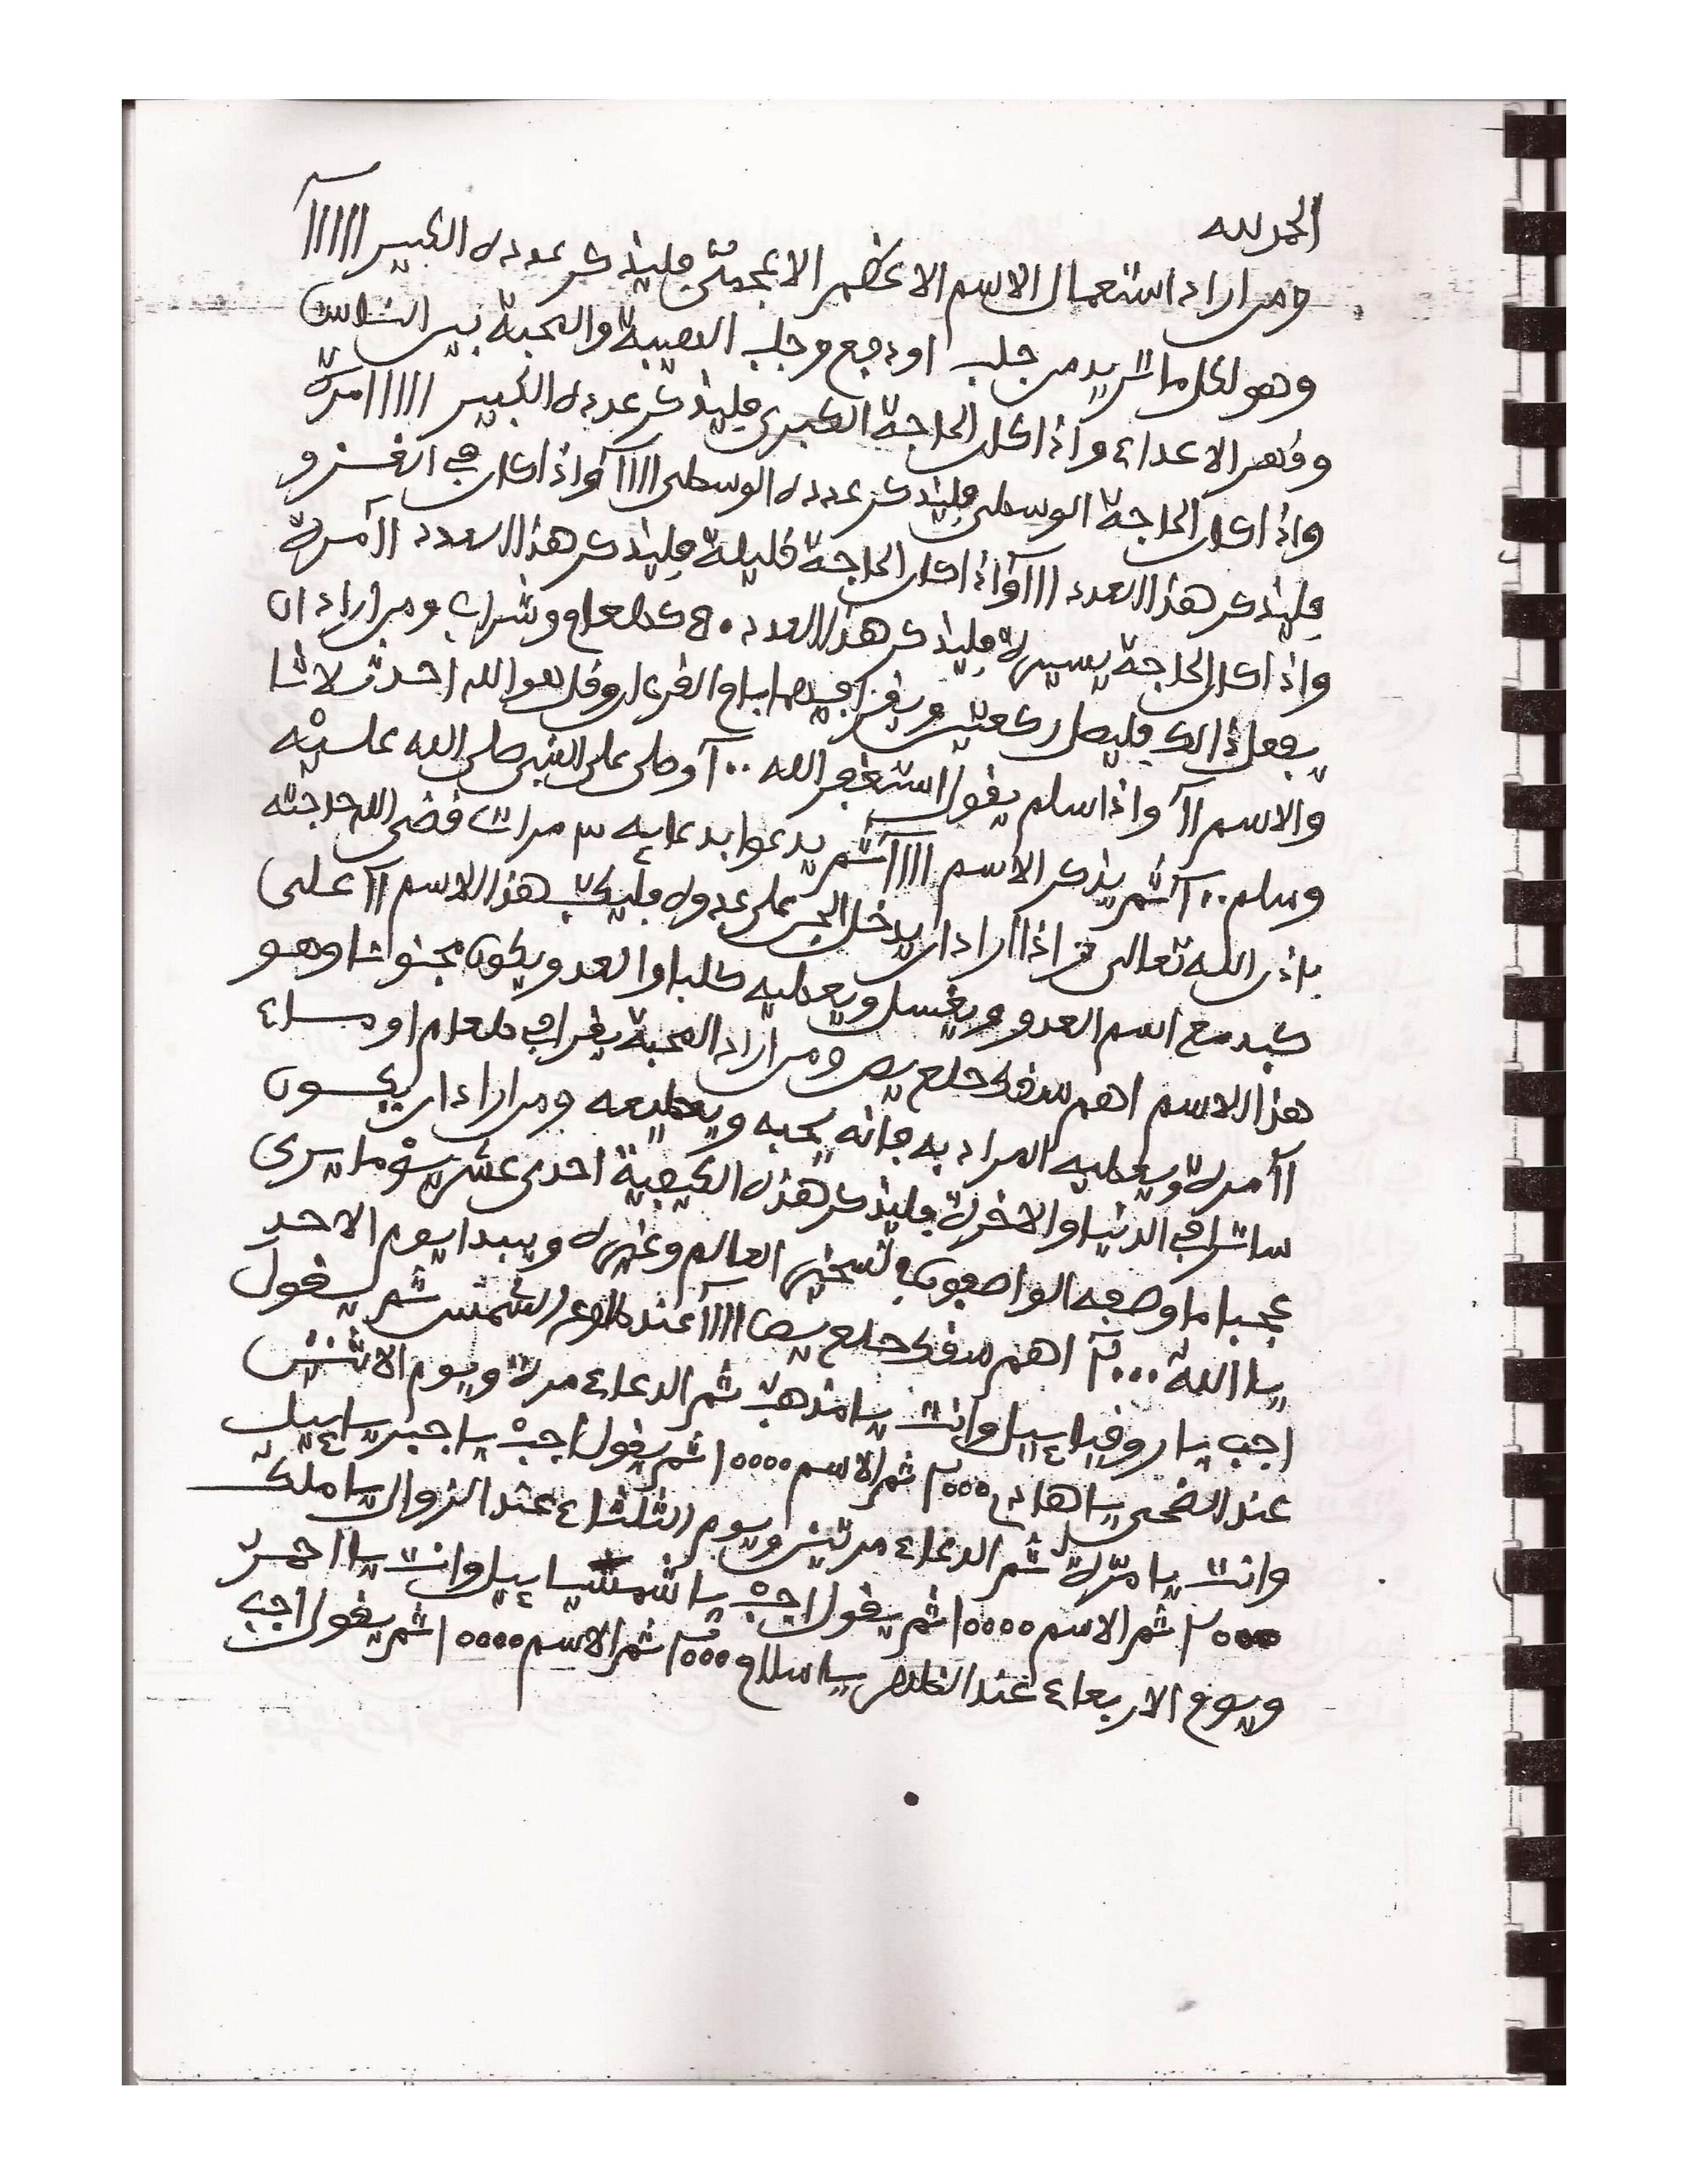 الحمد لله
ومن اراد استعمال الاسم الاعظم الاعجمي فليذكر عدده الكبير ااااااآ
وهو لكل ما تريد من جلب او دفع وجلب الهيبة والمحبة بين الناس
وقهر الاعداء واذا كان الحاجة الكبرى فليذكر عدده الكبير ااااا امرة
واذا كان الحاجة الوسطى فليذكر عدده الوسطى ااااآ واذا كان في الغزو
فليذكر هذا العدد اااآ واذا كان الحاجة قليلة فليذكر هذا العدد اآ مرة
واذا كان الحاجة يسيرة فليذكر هذا العدد كطعام وشراب ومن اراد ان
يفعل ذالك فليصل ركعتين ويقرا فيهما بام القرءان وقل هو الله احد ثلاثا
والاسم اآ واذا سلم يقول استغفر الله ٠٠آ وصلى على النبي صلى الله عليه
وسلم ٠٠آ ثم يذكر الاسم ااااآ ثم يدعوا بدعايه ٣ مرات قضى الله حاجته
باذن الله تعالى اذا اراد ان يدخل الجن على عدوه فليكتب هذا الاسم اآ على
كبد مع اسم العدو ويغسل ويعطيه كلبا والعدو يكون مجنونا وهو
هذا الاسم اهم سقك حلع يص ومن اراد المحبة يقرا في طعام او ماء
اآ مرة ويعطيه المراد به فانه يحبه ويطيعه ومن اراد ان يكون
في الدنيا والاخرة فليذكر هذه الكيفية احدى عشر يوما يرى
عجبا ما وصفه الواصفون في تسخير العالم وغيره ويبدا يوم الاحد
يا الله ٠٠٠آ اهم سقك حلع يص ااااآ عند طلوع الشمس ثم يقول
اجب يا روفياييل وانت يا مذهب ثم الدعاء مرة ويوم الاثنين
عند الضحى يا هادي ٢٠٠٠ ثم الاسم ١٠٠٠٠ ثم يقول اجب يا جبرياييل
وانت يا مرة ثم الدعاء مرتين ويوم الثلثاء عند الزوال يا ملك
٢٠٠٠ ثم الاسم ١٠٠٠٠ ثم يقول اجب يا شمسياييل وانت يا احمر
ويوم الاربعاء عند الظهر يا سلام ثم الاسم ١٠٠٠٠ ثم يقول اجب